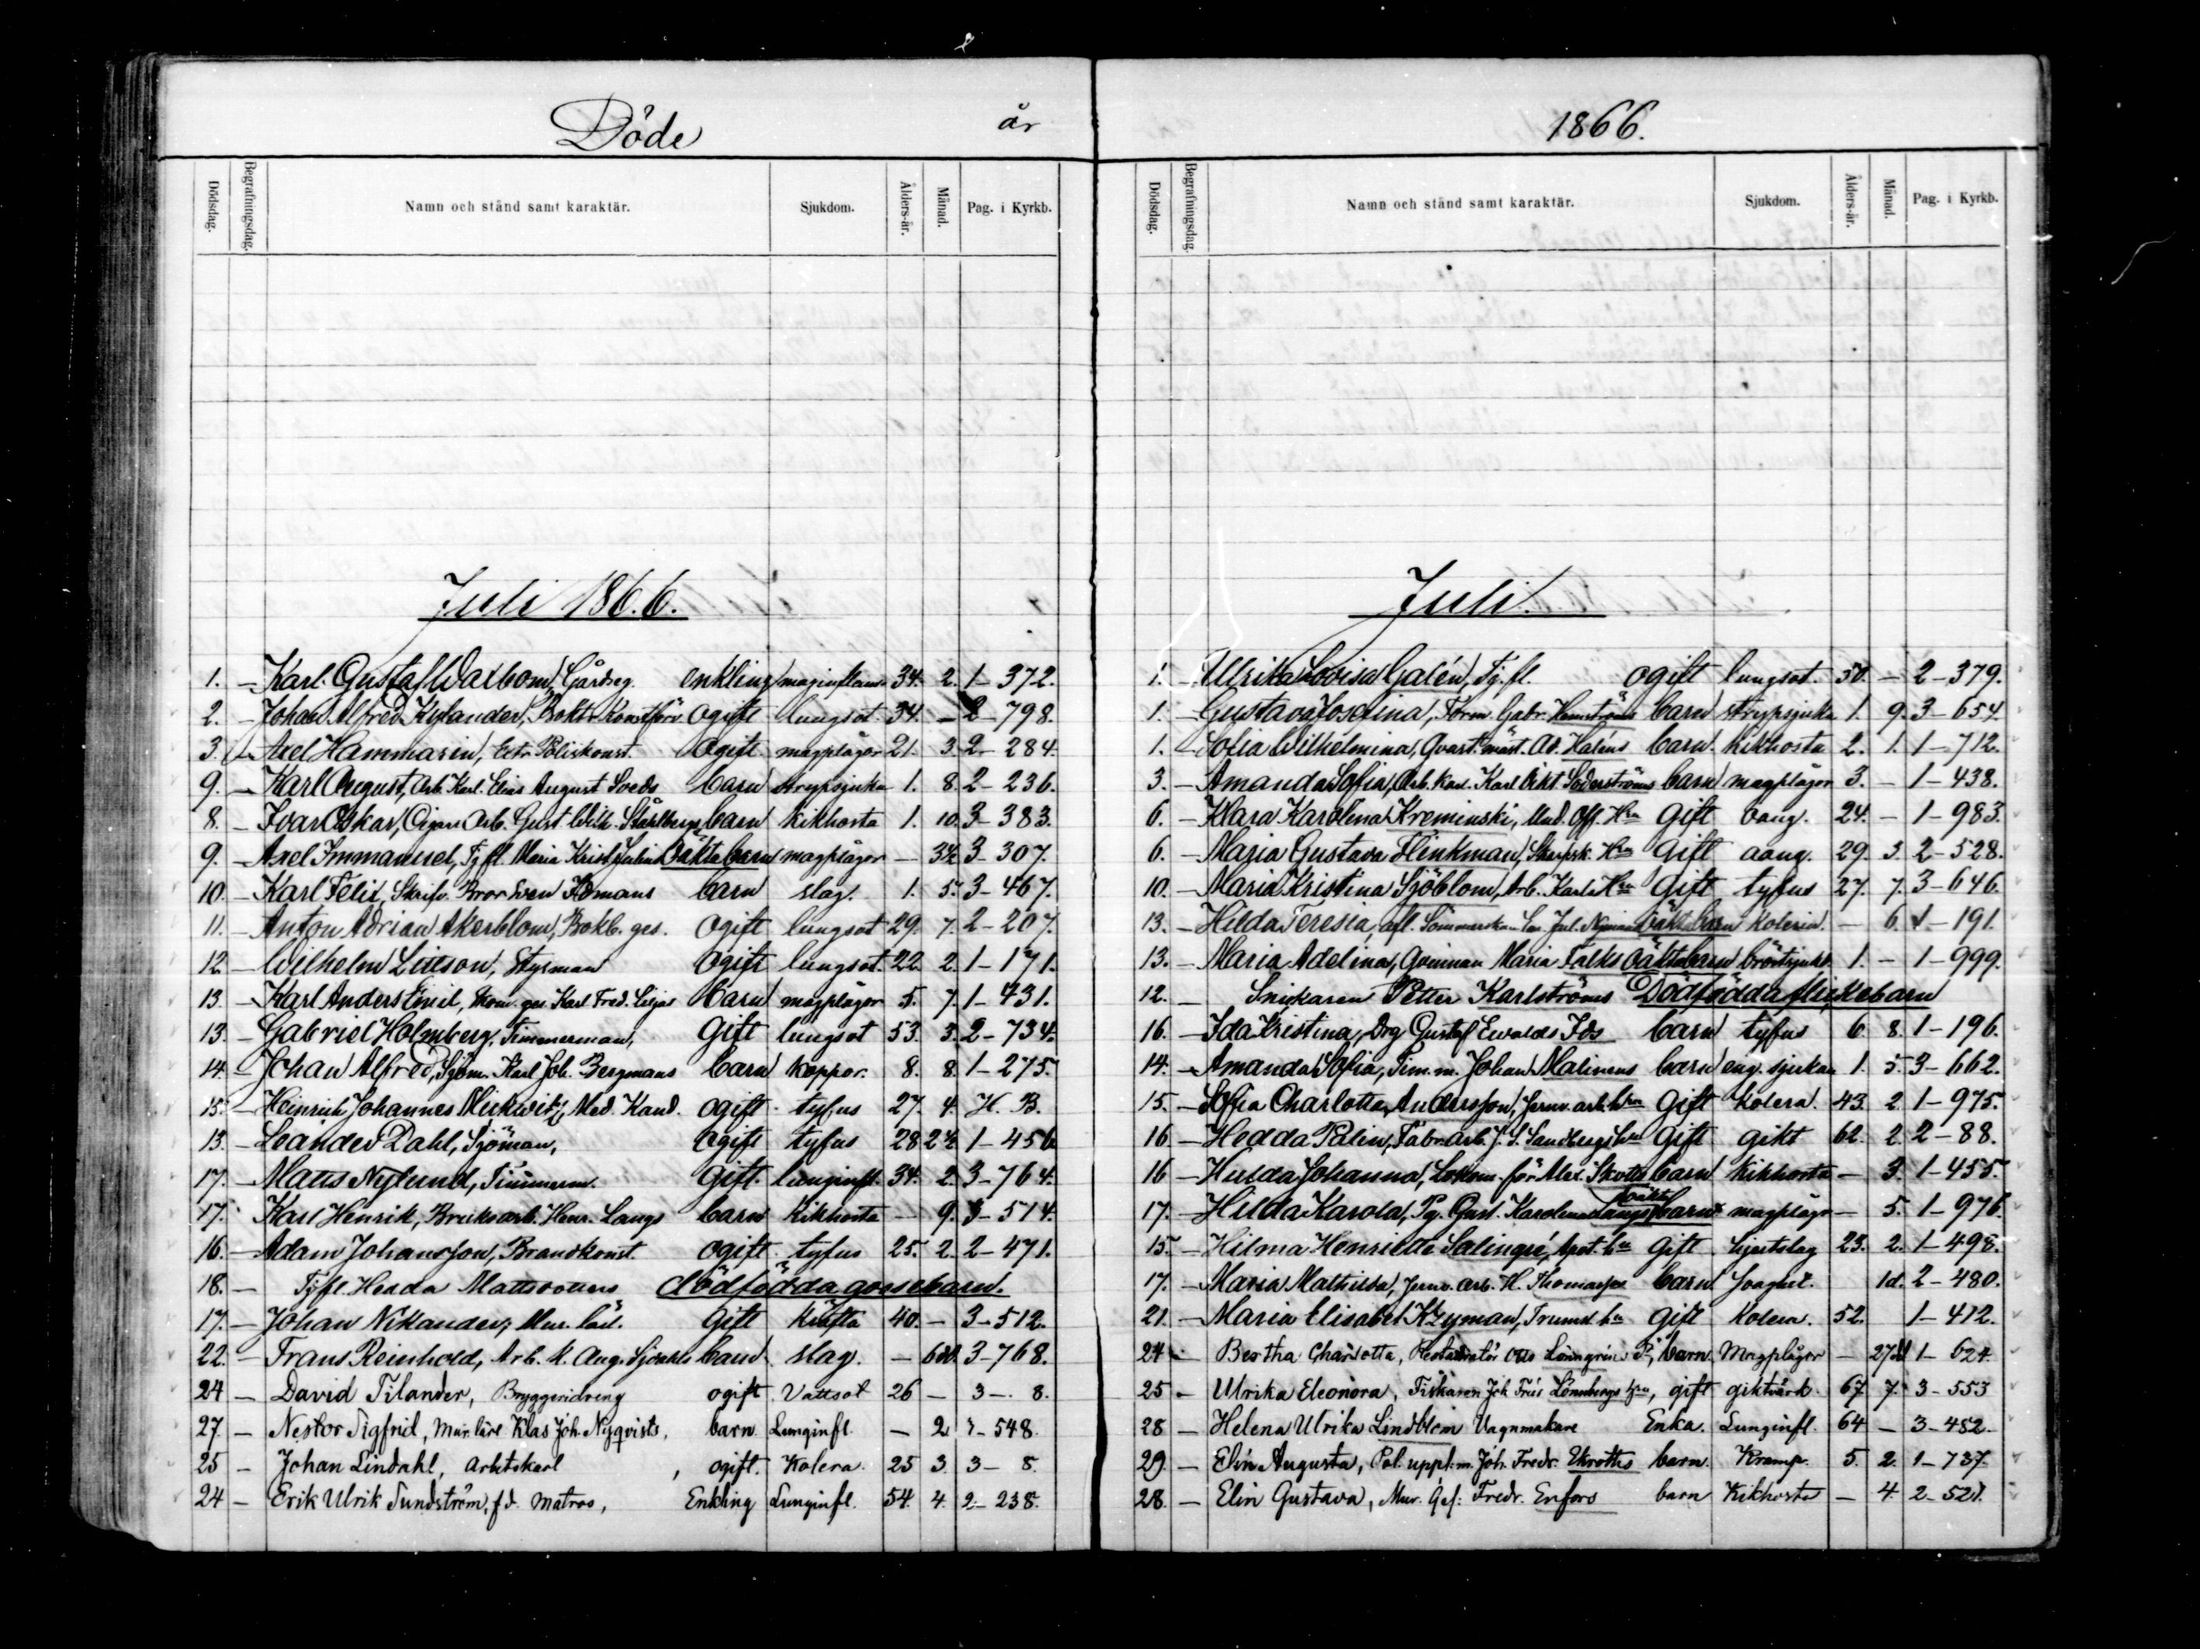 Döde år 1866.
Dödsdag. Begrafningsdag. Namn och stånd samt karaktär. Sjukdom. Ålders-år. Månad. Pag. i Kyrkb.
Juli 1866.
1. — Karl Gustaf Waxbom, Gårdseg. enkling maginflam. 34. 2. 1—372.
2. — Johan Alfred Kylander, Boktr. Konstför. Ogift lungsot 34. — 2—798.
3. — Axel Hammarin, Extr. Poliskonst. Ogift magplågor 21. 3. 2—284.
9. — Karl August, Arb. Karl. Elias August Soeds barn strypsjuka 1. 8. 2—236.
8. — Ivar Oskar, Cigarr Arb. Gust. Wilh. Ståhlbergs barn kikhosta 1. 10. 3—383.
9. — Axel Immanuel, Tj. fl. Maria Krist. Julins oäkta barn magplågor — 3½ 3—307.
10. — Karl Felix, Skrifv. Bror Sven Homans barn slag. 1. 5. 3—467.
11. — Anton Adrian Åkerblom, Bokb. ges. Ogift lungsot 29. 7. 2—207.
12. — Wilhelm Lixson, Styrman Ogift lungsot. 22. 2. 1—171.
13. — Karl Anders Emil, ges. Karl Fred. Liljas barn magplågor 5. 7. 1—431.
13. — Gabriel Holmberg, Timmerman, Gift lungsot 53. 3. 2—734.
14. — Johan Alfred, Sjöm. Karl Joh. Bergmans barn koppor. 8. 8. 1—275.
15. — Heinrich Johannes Mickwitz, Med. Kand. ogift tyfus 27. 4. H. B.
13. — Leander Dahl, Sjöman, Ogift tyfus 28 2½ 1—456
17. — Matts Nylund, Timmerm. Gift. lunginfl. 34. 2. 3—764.
17. — Karl Henrik, Bruksarb. Henr. Langs barn Kikhosta — 9. 3—514.
16. — Adam Johansson, Brandkonst. ogift. tyfus 25. 2. 2—471.
18. — Tjfl. Hedda Mattsdotters dödfödda gossebarn.
17. — Johan Nikander, Mur. lärl. Gift Kräfta 40. — 3—512.
22. — Frans Reinhold, Arb. k. Aug. Sjödahls barn slag. — 6 d. 3—768.
24 — David Tilander, Bryggeridreng ogift. Vattsot 26 — 3—. 8.
27. — Nestor Sigfrid, Mur. lärl. Klas Joh. Nyqvists, barn. Lunginfl. — 2 3—548.
25 — Johan Lindahl, Arbetskarl, ogift. Kolera. 25 3 3— 8.
24 — Erik Ulrik Sundström, f.d. Matros, Enkling Lunginfl. 54. 4. 2—238.
Dödsdag. Begrafningsdag. Namn och stånd samt karaktär. Sjukdom. Ålders-år. Månad. Pag. i Kyrkb.
Juli.
1. — Ulrika Lovisa Galén, Tj. fl. Ogift lungsot. 50. — 2—379.
1. — Gustava Josefina, Form. Gabr. Hemströms barn strypsjuka 1. 9. 3—654.
1. — Sofia Wilhelmina, Qvart.mäst. Ad. Haléns barn. kikhosta 2. 1. 1—712.
3. — Amanda Sofia, Arb. karl. Karl Vikt. Söderströms barn magplågor 3. — 1—438.
6. — Klara Karolina Kreminski, Und. Off. Hru Gift aang. 24. — 1—983.
6. — Maria Gustava Flinkman, Skarpsk. Hru Gift aang. 29. 3. 2—528.
10. — Maria Kristina Sjöblom, Arb. Karls Hru Gift tyfus 27. 7. 3—646.
13. — Hilda Teresia, afl. Jul. Nymans oäkta barn kolerin. — 6 1—191.
13. — Maria Adelina, Qvinnan Maria Falks oäkta barn bröstsjukd. 1. — 1—999.
12. — Snickaren Petter Karlströms Dödfödda flickebarn
16. — Ida Kristina, Drg Gustaf Ewalds Ids barn tyfus 6. 8. 1—196.
14. — Amanda Sofia, Tim. m. Johan Malinens barn eng. sjukan 1. 5. 3—662.
15. — Sofia Charlotta Andersson, Jernv. arb. hru Gift Kolera. 43. 2. 1—975.
16 — Hedda Palin, Fabr. arb. J. S. Sandbergs hru Gift gikt 62. 2. 2—88.
16 — Hulda Johanna, Lokom. för Skotts barn kikhosta — 3. 1—455.
17. — Hilda Karola, Pg. Gust. Karolina Langs oäkta barn magplågor — 5. 1—976.
15. — Hilma Henriette Salingré, Apot. hru Gift hjertslag 23. 2. 1—498.
17. — Maria Mathilda, Jernv. arb. H. Thomassons barn Svaghet. 1d. 2—480.
21. — Maria Elisabet Kyman, Trumsl. hru Gift Kolera. 52. 1—412.
24 — Bertha Charlotta, Restauratör Otto Lönngrens P., barn. Magplågor — 27d 1—624.
25 — Ulrika Eleonora, Fiskaren Joh. Fries Lönnbergs hru, gift giktvärk. 67 7. 3—553
28 — Helena Ulrika Lindblom Vagnmakare Enka. Lunginfl. 64 — 3—482.
29. — Elin Augusta, Pol. uppt. m. Joh. Fredr. Ekroths barn. Kramp. 5. 2. 1—737.
28. — Elin Gustava, Mur. Ges. Fredr. Enfors barn Kikhosta — 4. 2—521.